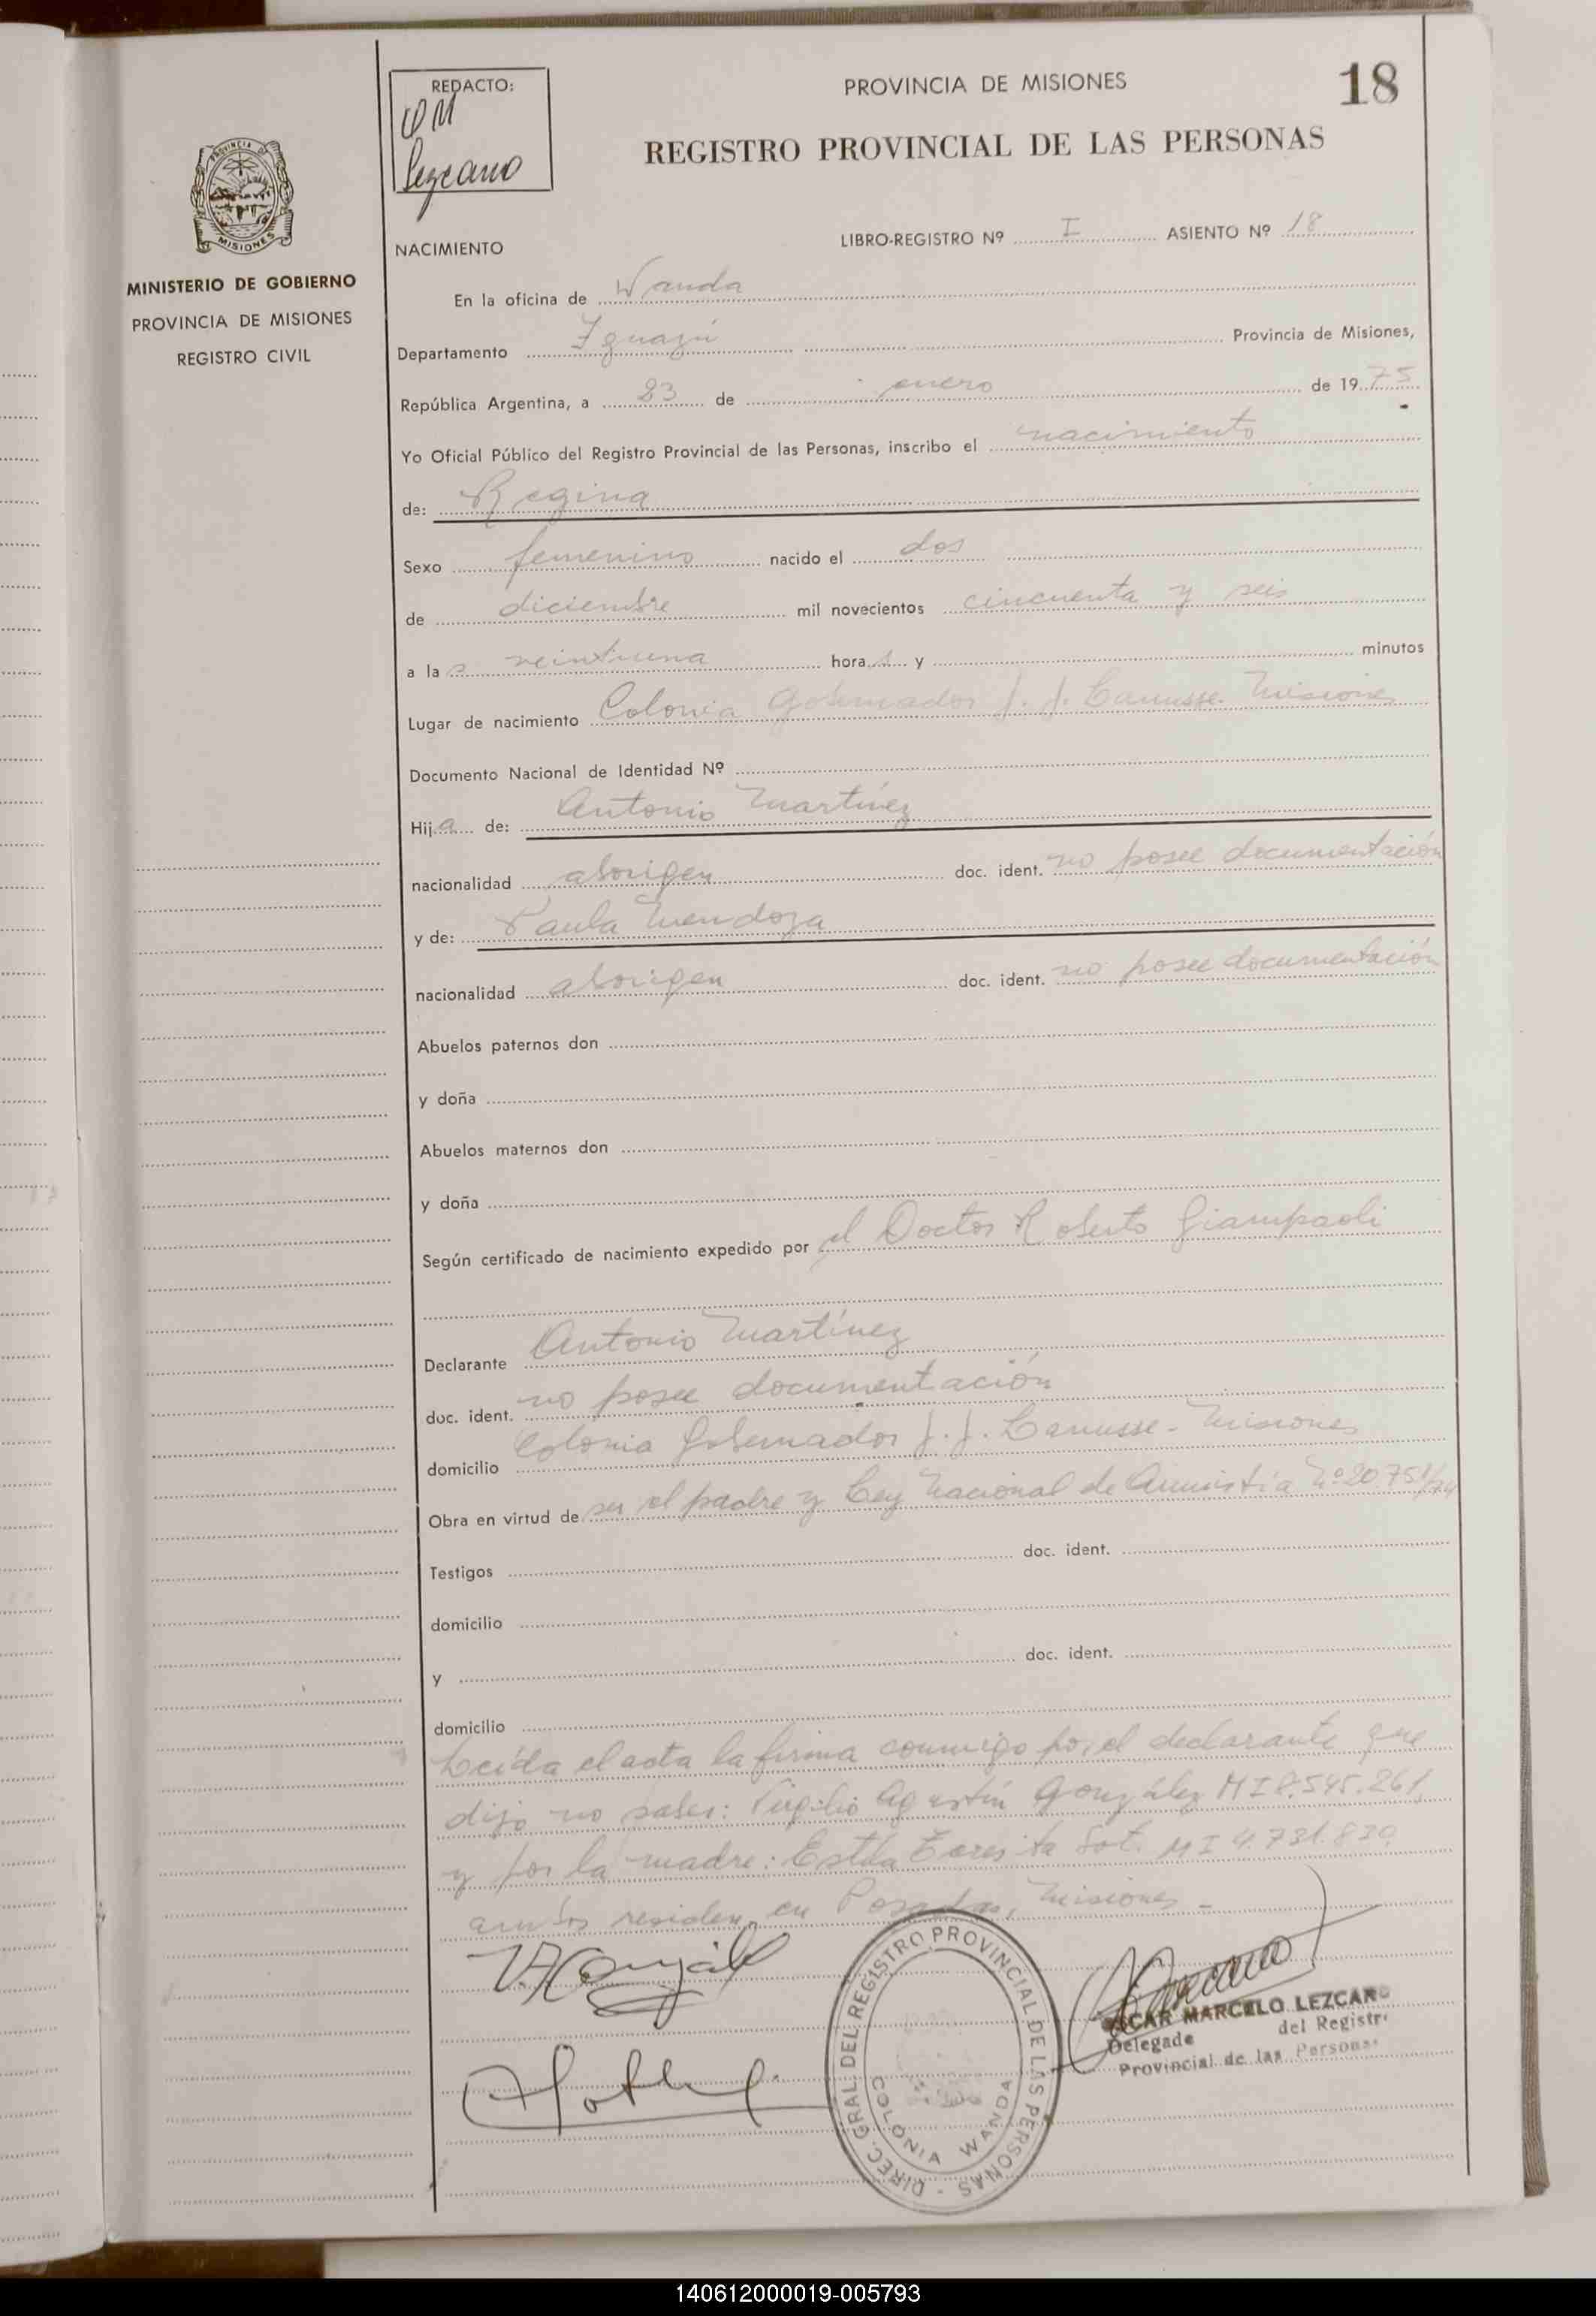 REDACTO:
OM
Lezcano
PROVINCIA DE MISIONES
18
REGISTRO PROVINCIAL DE LAS PERSONAS
PROVINCIA DE
MISIONES
MINISTERIO DE GOBIERNO
PROVINCIA DE MISIONES
REGISTRO CIVIL
NACIMIENTO
LIBRO-REGISTRO Nº I ASIENTO Nº 18
En la oficina de Wanda
Departamento Iguazú Provincia de Misiones,
República Argentina, a 23 de enero de 1975
Yo Oficial Público del Registro Provincial de las Personas, inscribo el nacimiento
de: Regina
Sexo femenino nacido el dos
de diciembre mil novecientos cincuenta y seis
a las veintiuna horas y minutos
Lugar de nacimiento Colonia Gobernador J. J. Lanusse. Misiones
Documento Nacional de Identidad Nº
Hija de: Antonio Martínez
nacionalidad aborigen doc. ident. no posee documentación
y de: Paula Mendoza
nacionalidad aborigen doc. ident. no posee documentación
Abuelos paternos don
y doña
Abuelos maternos don
y doña
Según certificado de nacimiento expedido por el Doctor Roberto Giampaoli
Declarante Antonio Martínez
doc. ident. no posee documentación
domicilio Colonia Gobernador J. J. Lanusse - Misiones
Obra en virtud de ser el padre y Ley Nacional de Amnistía Nº 20.751/74
Testigos doc. ident.
domicilio
y doc. ident.
domicilio
Leída el acta la firma conmigo por el declarante que
dijo no saber: Virgilio Agustín González MI 8.545.261,
y por la madre: Estela Teresita MI 4.731.830,
ambos residen en Posadas, Misiones -
DIREC. GRAL. DEL REGISTRO PROVINCIAL DE LAS PERSONAS -
COLONIA WANDA
OSCAR MARCELO LEZCANO
Delegado del Registro
Provincial de las Personas
140612000019-005793